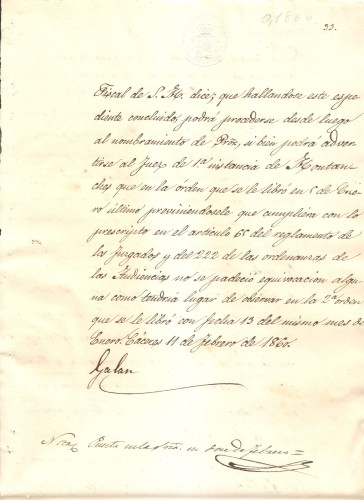 0,1860
33.
Fiscal de S. M. dice, que hallandose este espe
diente concluido, podrá procederse desde luego
al nombramiento de Prõr, si bien podrá adver
tirse al Juez de 1ª instancia de Montan
ches que en la órden que se le libró en de Ene
ro último previniendosele que cumpliera con lo
prescripto en el articulo 6º del reglamento de
los Juzgados y del 222 de las ordenanzas de
las Audiencias no se padeció equivocacion algu
na como tendria lugar de observar en la 2ª orden
que se le libró con fecha 13 del mismo mes de
Enero. Cáceres 11 de Febrero de 1860.
Galan
Nota, Cuenta en doce de Febrero =